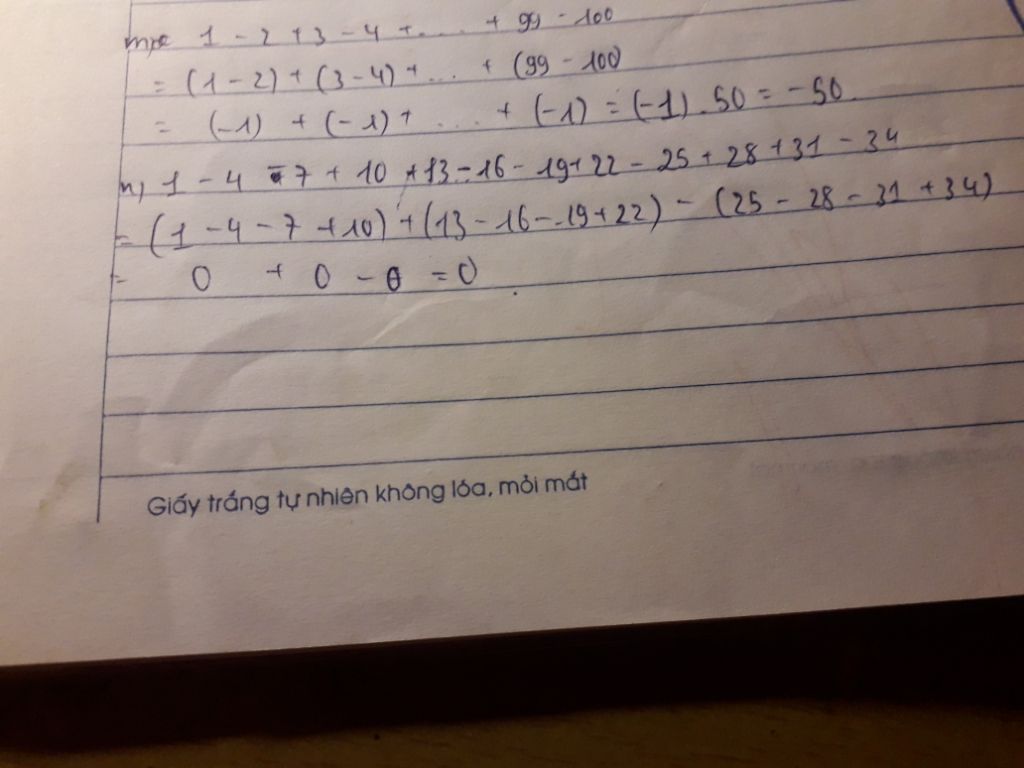 1 - 2 + 3 - 4 + ... + 99 - 100
= (1 - 2) + (3 - 4) + ... + (99 - 100)
= (-1) + (-1) + ... + (-1) = (-1) . 50 = -50
n) 1 - 4 - 7 + 10 + 13 - 16 - 19 + 22 - 25 + 28 + 31 - 34
= (1 - 4 - 7 + 10) + (13 - 16 - 19 + 22) - (25 - 28 - 31 + 34)
= 0 + 0 - 0 = 0
Giấy trắng tự nhiên không lóa, mỏi mắt